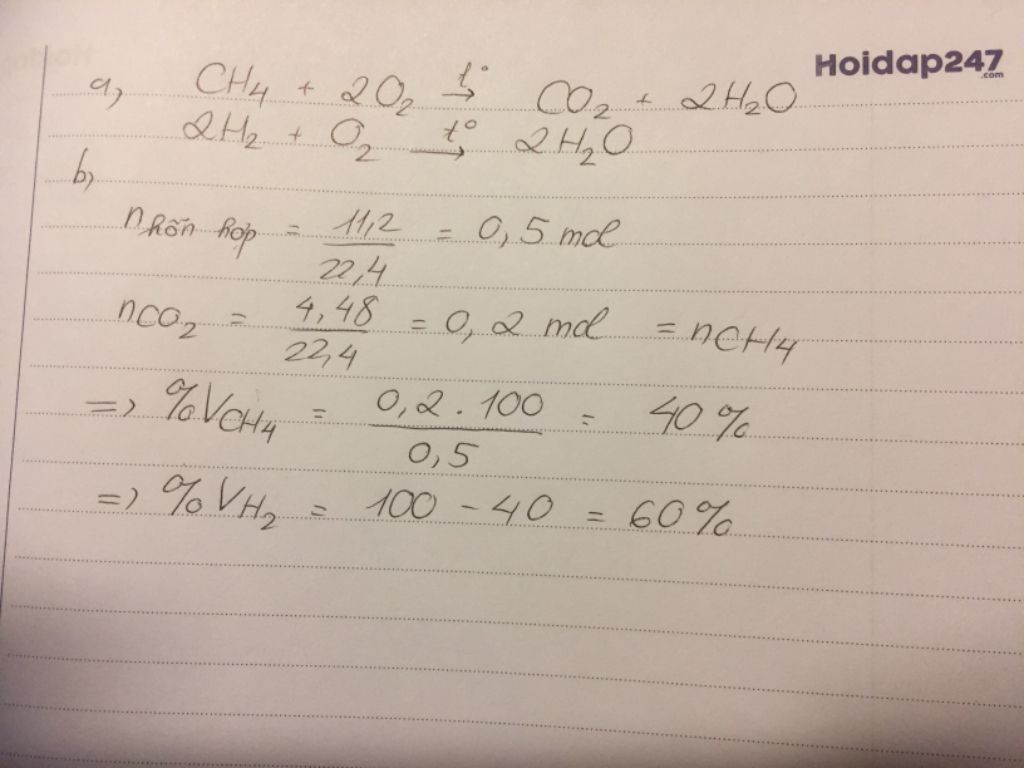 Hoidap247
.com
a, CH₄ + 2O₂ t°→ CO₂ + 2H₂O
2H₂ + O₂ t°→ 2H₂O
b,
n hỗn hợp = 11,2 / 22,4 = 0,5 mol
nCO₂ = 4,48 / 22,4 = 0,2 mol = nCH₄
=> %VCH₄ = 0,2 . 100 / 0,5 = 40%
=> %VH₂ = 100 - 40 = 60%